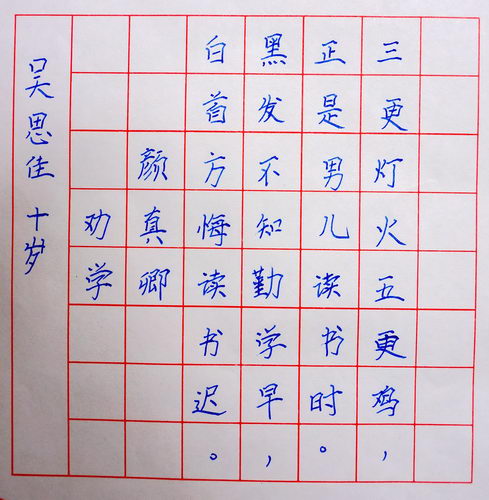 三更灯火五更鸡，
正是男儿读书时。
黑发不知勤学早，
白首方悔读书迟。
颜真卿
劝学
吴思佳 十岁